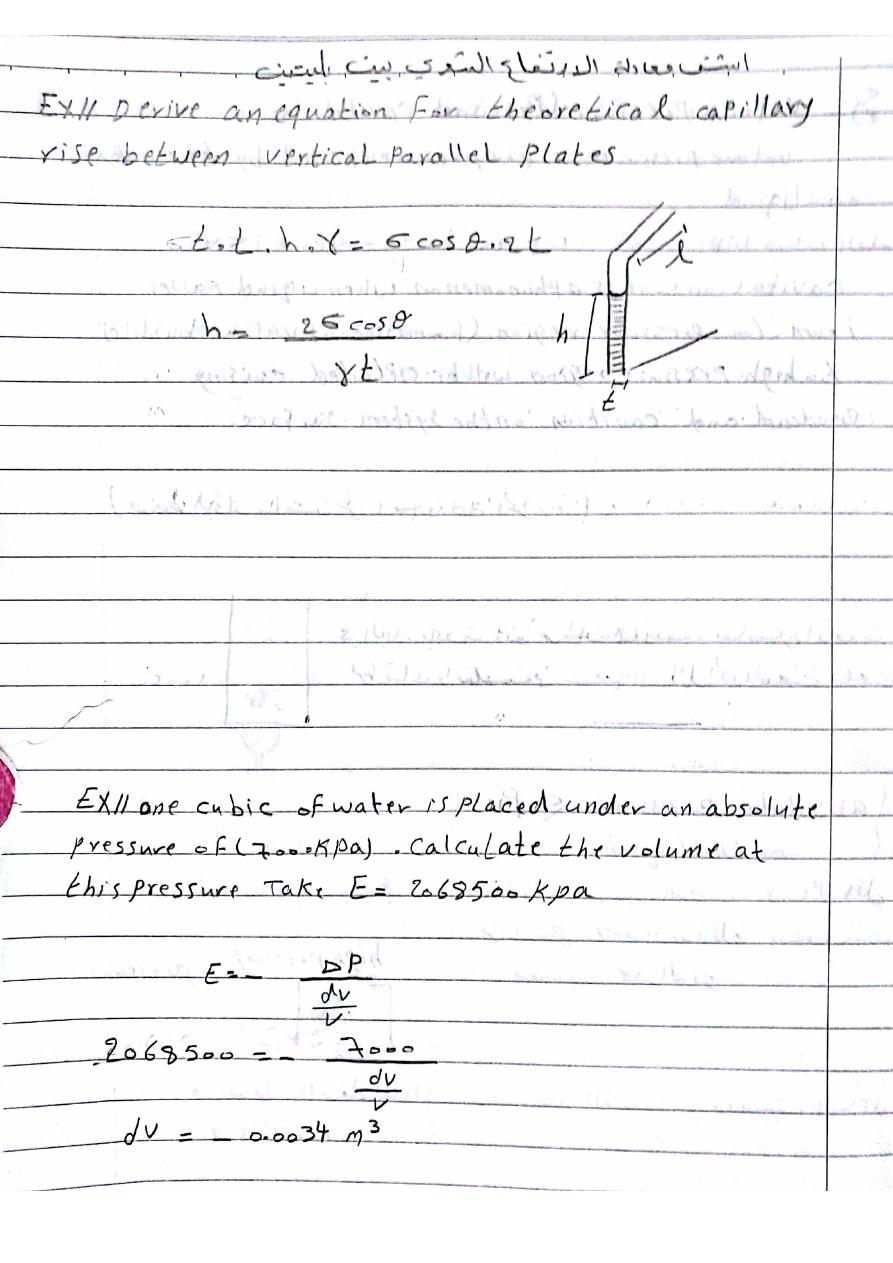 اشتق معادلة الارتفاع الشعري بين بليتين
EX// Derive an equation For theoretical capillary
rise between vertical parallel plates
t.l.h.γ = σ cos θ.2l
h = 2σ cosθ / γt
l
h
t
EX// one cubic of water is placed under an absolute
pressure of (7000 KPa). Calculate the volume at
this pressure Take E = 2068500 Kpa
E = - ΔP / (dv / v)
2068500 = - 7000 / (dv / v)
dv = - 0.0034 m³